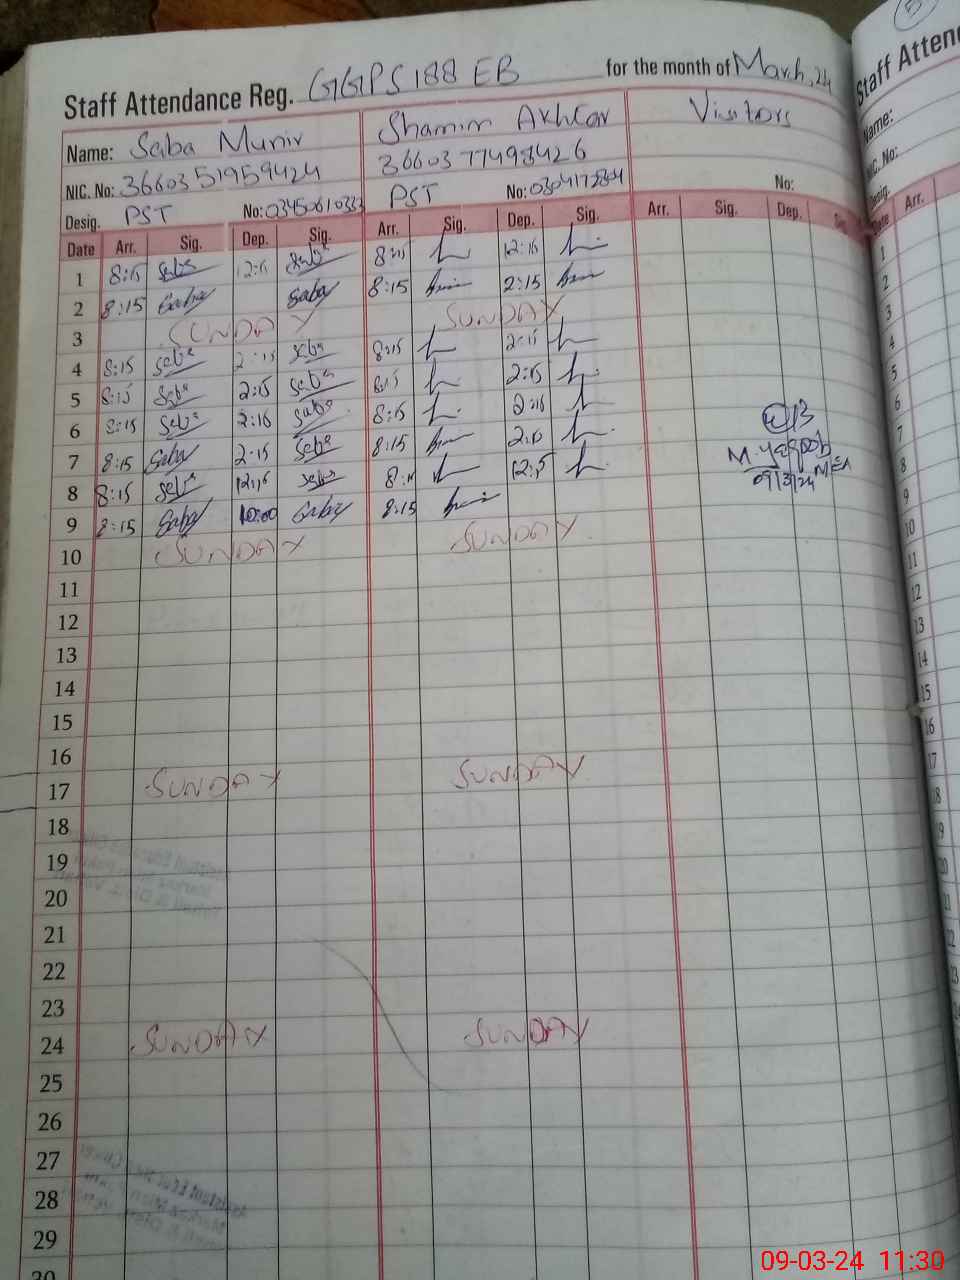 Staff Attendance Reg. GGPS 188 EB for the month of March, 24
Name: Saba Munir Shamim Akhtar Visitors
NIC. No: 3660351959424 3660377498426
Desig. PST No: 03450610333 PST No: 0304172804 No:
Date Arr. Sig. Dep. Sig. Arr. Sig. Dep. Sig. Arr. Sig. Dep. Sig.
1 8:15 Saba 12:15 Saba 8:15 12:15
2 8:15 Saba Saba 8:15 2:15
3 SUNDAY SUNDAY
4 8:15 Saba 2:15 Saba 8:15 2:15
5 8:15 Saba 2:15 Saba 8:15 2:15
6 8:15 Saba 2:15 Saba 8:15 2:15
7 8:15 Saba 2:15 Saba 8:15 2:15
8 8:15 Saba 12:15 Saba 8:15 12:15
M. Yaqoob
09/3/24
9 8:15 Saba 10:00 Saba 8:15
10 SUNDAY SUNDAY
11
12
13
14
15
16
17 SUNDAY SUNDAY
18
19
20
21
22
23
24 SUNDAY SUNDAY
25
26
27
28
29
30
Staff Atten
Name:
NIC. No:
Desig.
Date Arr.
1
2
3
4
5
6
7
8
9
10
11
12
13
14
15
16
17
09-03-24 11:30